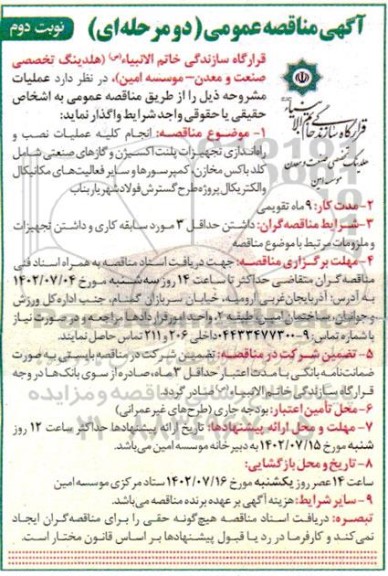 آگهی مناقصه عمومی (دو مرحله‌ای)
نوبت دوم
قرارگاه سازندگی خاتم الانبیاء(ص) (هلدینگ تخصصی
صنعت و معدن- موسسه امین)، در نظر دارد عملیات
مشروحه ذیل را از طریق مناقصه عمومی به اشخاص
حقیقی یا حقوقی واجد شرایط واگذار نماید:
قرارگاه سازندگی خاتم الانبیاء
هلدینگ تخصصی صنعت و معدن
موسسه امین
۱- موضوع مناقصه: انجام کلیه عملیات نصب و
راه‌اندازی تجهیزات پلنت اکسیژن و گازهای صنعتی شامل
کلد باکس مخازن، کمپرسورها و سایر فعالیت‌های مکانیکال
والکتریکال پروژه طرح گسترش فولاد شهریار بناب
۲- مدت کار: ۹ ماه تقویمی
۳- شرایط مناقصه گران: داشتن حداقل ۳ مورد سابقه کاری و داشتن تجهیزات
و ملزومات مرتبط با موضوع مناقصه
۴- مهلت برگزاری مناقصه: جهت دریافت اسناد مناقصه به همراه اسناد فنی
مناقصه گران متقاضی حداکثر تا ساعت ۱۴ روز سه‌شنبه مورخ ۱۴۰۲/۰۷/۰۴
به آدرس: آذربایجان غربی ارومیه، خیابان سربازان گمنام، جنب اداره کل ورزش
و جوانان، ساختمان امین طبقه ۲، واحد امور قراردادها مراجعه و در صورت نیاز
با شماره تماس: ۹-۰۴۴۳۳۴۷۷۳۰۰ داخلی ۲۰۶ و ۲۱۱ تماس حاصل نمایند.
۵- تضمین شرکت در مناقصه: تضمین شرکت در مناقصه بایستی به صورت
ضمانت‌نامه بانکی با مدت اعتبار حداقل ۳ ماه، صادره از سوی بانک‌ها در وجه
قرارگاه سازندگی خاتم الانبیاء(ص) صادر گردد.
۶- محل تأمین اعتبار: بودجه جاری (طرح‌های غیرعمرانی)
۷- مهلت و محل ارائه پیشنهادها: تاریخ ارائه پیشنهادها حداکثر ساعت ۱۲ روز
شنبه مورخ ۱۴۰۲/۰۷/۱۵ به دبیرخانه موسسه امین می‌باشد.
۸- تاریخ و محل بازگشایی:
ساعت ۱۴ عصر روز یکشنبه مورخ ۱۴۰۲/۰۷/۱۶ ستاد مرکزی موسسه امین
۹- سایر شرایط: هزینه آگهی بر عهده برنده مناقصه می‌باشد.
تبصره: دریافت اسناد مناقصه هیچ‌گونه حقی را برای مناقصه گران ایجاد
نمی‌کند و کارفرما در رد یا قبول پیشنهادها بر اساس قانون مختار است.